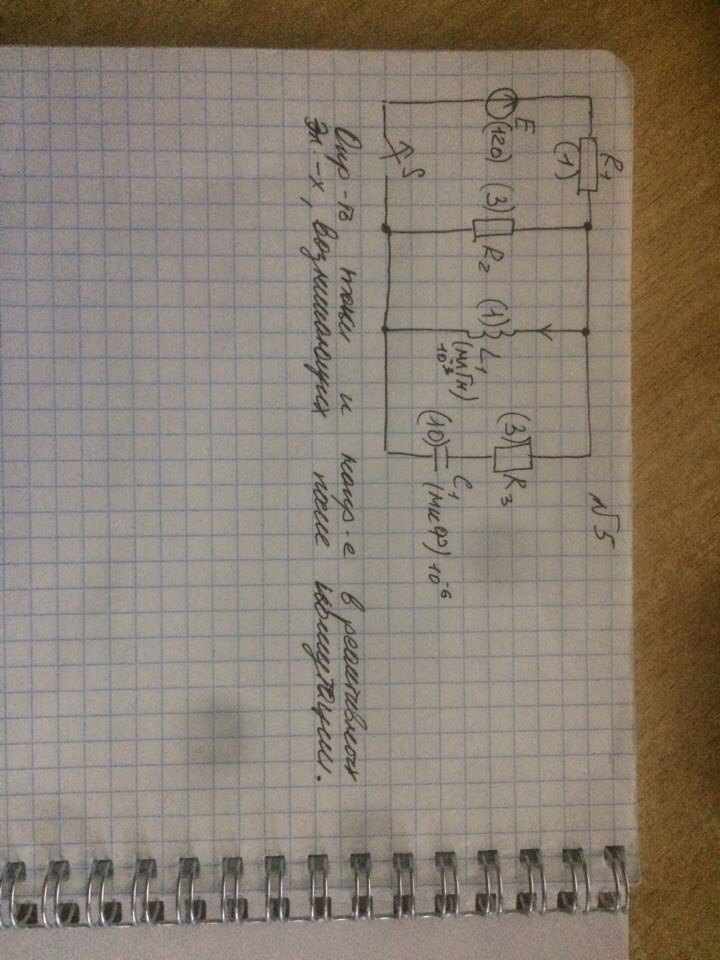 √5
R1
(1)
E
(120)
(3)
R2
(1)
L1
(млГн)
10⁻³
(3)
R3
(10)
C1
(мкФ) 10⁻⁶
S
Опр-ть токи и напр-е в реактивных
эл.-х, возникающих после коммутации.